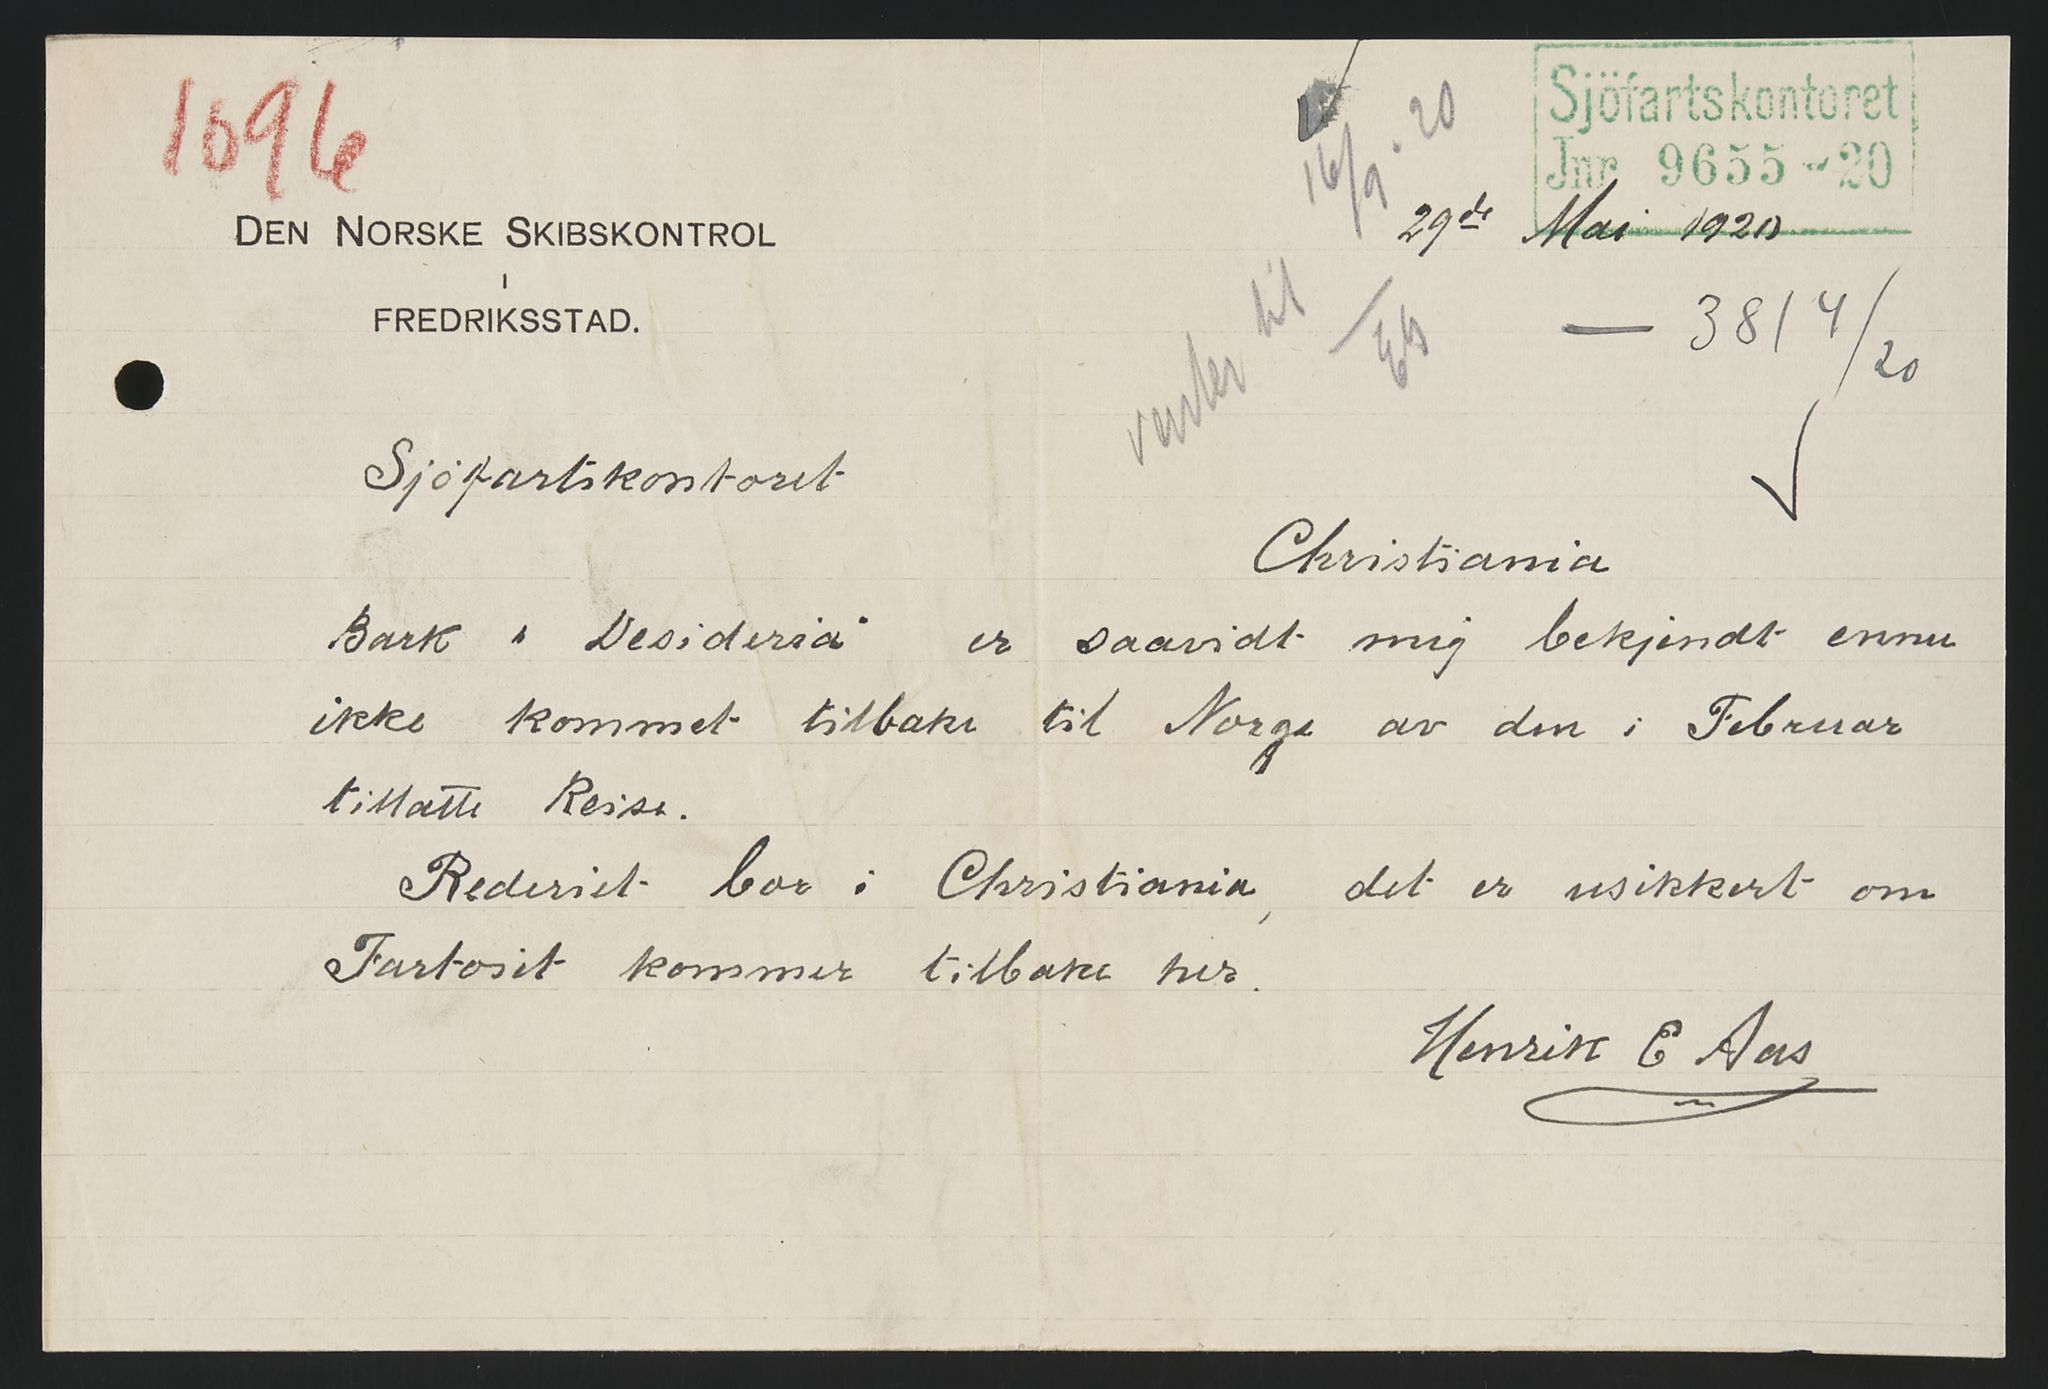 1096
Sjöfartskontoret
Jnr 9655-20
16/9.20
DEN NORSKE SKIBSKONTROL
I
FREDRIKSSTAD.
29de Mai 1920
— 3814/20
venter til
Sjöfartskontoret
Christiania
Bark "Desideria" er saavidt mig bekjendt ennu
ikke kommet tilbake til Norge av den i Februar
tillatte Reise.
Rederiet bor i Christiania, det er usikkert om
Fartoiet kommer tilbake her.
Henrik E Aas